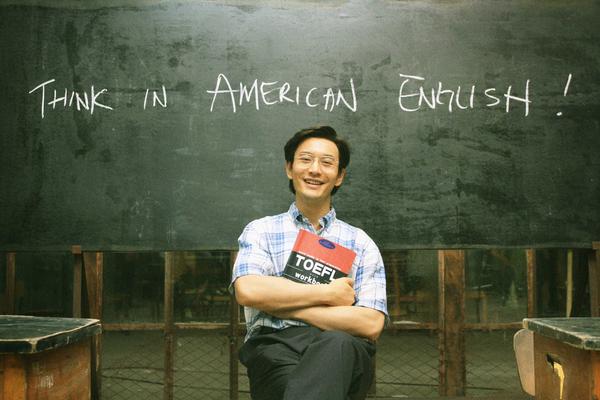 THINK IN AMERICAN ENGLISH!
TOEFL